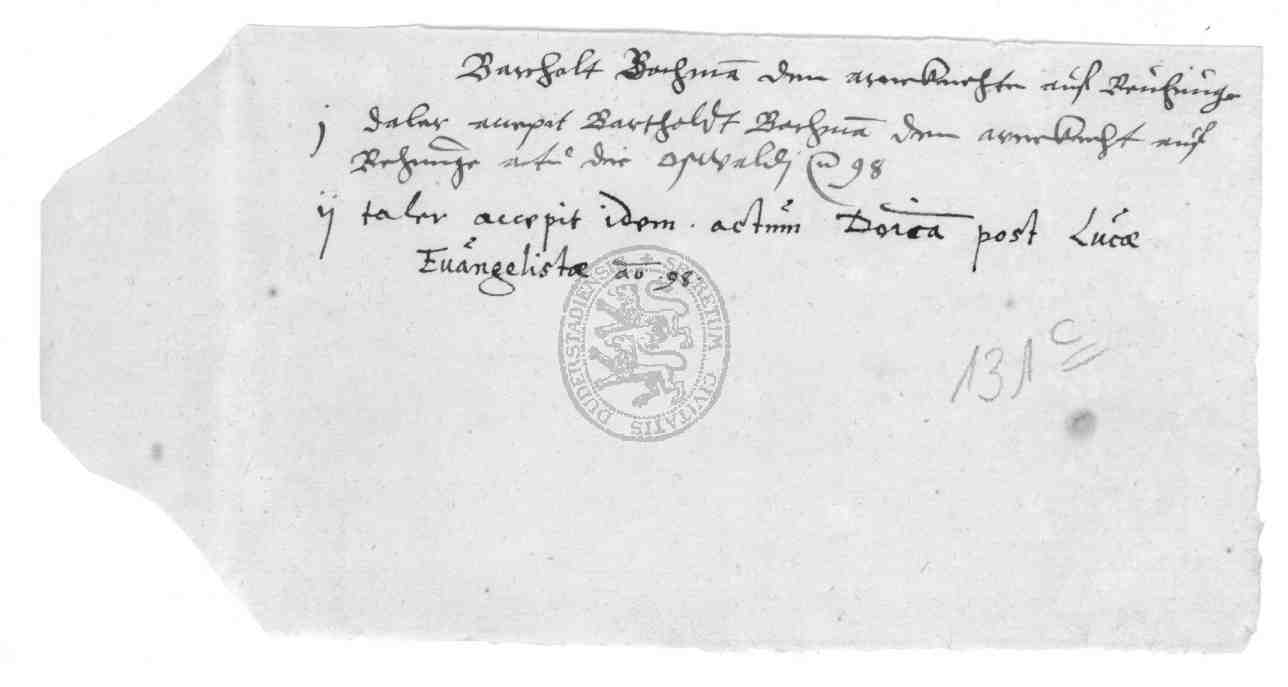 Bartholt Bochman̄ dem arneknechte auf Rechnũnge
j daler accepit Bartholdt Bochman̄ dem arneknecht auf
Rechnunge actu die Oswaldj 98
ij taler accepit idem . actum Dorica post Lucæ
Euangelistæ ao 98
131 c
SECRETUM CIVITATIS DUDERSTADIENSIS